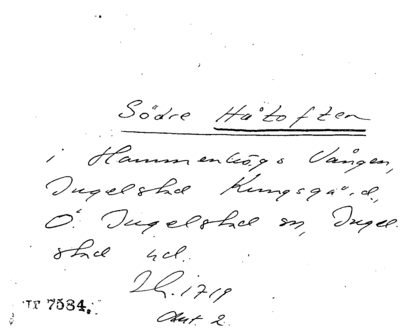 Södre Håtoften
i Hammenhögs Vången,
Ingelstad Kungsgård,
Ö. Ingelstad sn, Ingel-
stad hd.
Lh. 1719
Akt. 2.
7584.